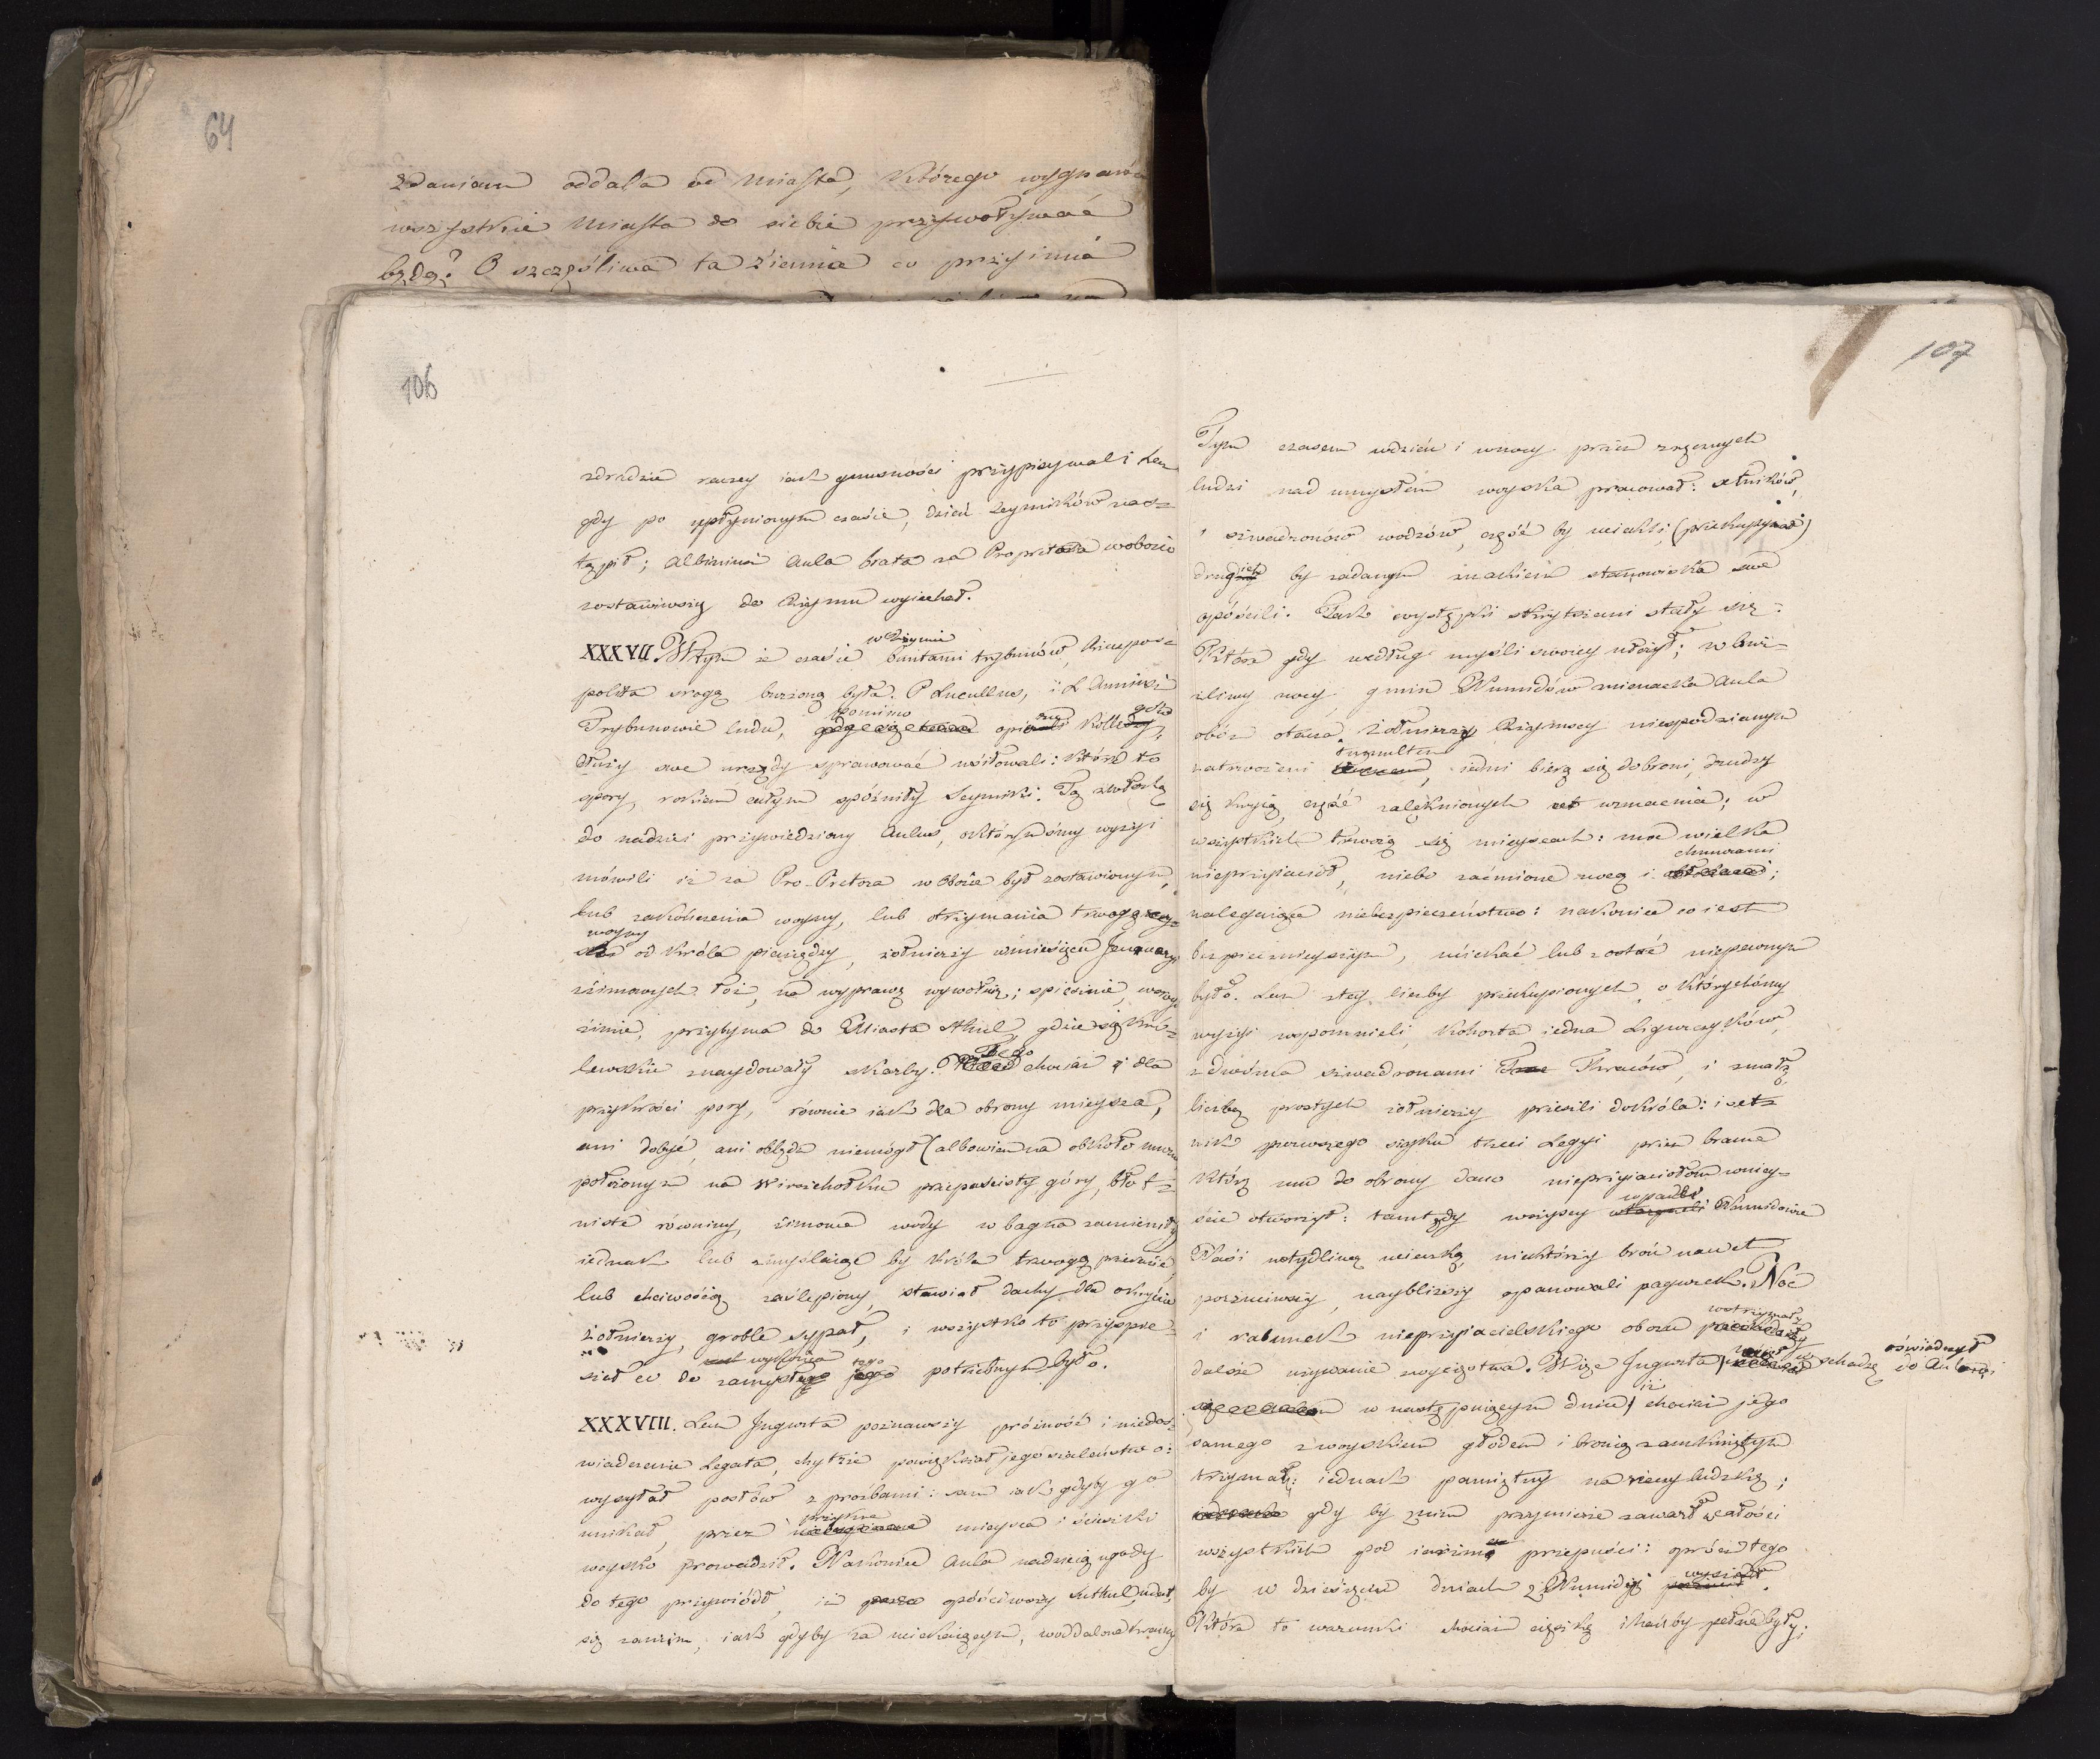 64
zdaniem oddala od miasta, którego wygnańca
wszystkie miasta do siebie przywoływać
będą? O szczęśliwa ta ziemia co przyimie
106
zdradzie raczey iak gnusności przypisywali. Lecz
gdy po upłynionym czasie, dzień Seymików nad-
tąpił; Albinus Aula brata za Propretora w obozie
zostawiwszy do Rzymu wyiechał.
XXXVII. W tym że czasie w Rzymie buntami trybunów, Rzeczpos-
polita srogą burzoną była. P Lucullus, i L Anniusz
Trybunowie ludu, pomimo opieranie Kollegów,
dłuży swe urzędy sprawować usiłowali: które to
spory, rokiem całym spóźniły Seymiki. Tą zwłoką
do nadziei przywiedziony Aulus, o którymeśmy wyżyi
mówili iż za Pro-Pretora w Obozie był zostawionym,
lub zakończenia woyny, lub otrzymania trwogą
woyny od króla pieniędzy, żołnierzy w miesiącu January
z zimowych łoż, na wyprawę wywołuie; spiesznie, w ostrey
zimie, przybywa do Miasta Suthul, gdzie się kró-
lewskie znaydowały skarby. Tego chociaż i dla
przykrości pory, równie iak dla obrony mieysca,
ani dobyć, ani oblądz niemógł (albowiem na około muru
położonym na Wierzchołku przepaścisty góry, błot-
niste równiny, zimowe wody w bagna zamieniły
iednak lub zmyślaiąc by króla trwogą przeraził,
lub chciwością zaślepiony, stawiał dachy dla okrycia
żołnierzy, groble sypał, i wszystko to przyspie-
szał co do wykonania zamysłu tego potrzebnym było.
XXXVIII. Lecz Jugurta poznawszy próżność i niedoś-
wiadczenie Legata, chytrze powiększał jego szaleństwo:
wysyłał posłów z prośbami: sam iak gdyby go
unikał, przez przykre mieysca i ścieszki
woysko prowadził. Nakoniec Aula nadzieią ugody
do tego przywiódł, iż opóściwszy Suthul, udał
się zanim, iak gdyby za uciekaiącym, w oddalone kraie
107
Tym czasem w dzień i w nocy przez zręcznych
ludzi nad umysłem woyska pracował: setników,
i szwadronów wodzów, część by uciekli (przekupywał)
drugich by zadanym znakiem stanowiska swe
opóścili. Tak występki skrytości stały się:
Które gdy według myśli swoiey ułożył; w bur-
zliwy nocy gmin Numidów znienacka Aula
obóz otacza. Żołnierzy Rzymscy niespodzianym
zatrwożeni tumultem, iedni bierą się do broni, drudzy
się kryią, część zalęknionych wzmacnia; w
wszystkich trwożą się mieyscach: moc wielka
nieprzyiaciół, niebo zaćmione nocą i chmurami;
nalegaiące niebezpieczeństwo: nakoniec co iest
bezpiecznieyszym, uciekać lub zostać niepewnym
było. Lecz z tey liczby przekupionych, o którycheśmy
wyżyi wspomnieli, kohorta iedna Ligurczyków,
z dwóma szwadronami Thraców, i z małą
liczbą prostych żołnierzy przeszli do króla: i set-
nik pierwszego szyku trzeci Legyi przez bramę
którą mu do obrony dano nieprzyiaciołom wniey-
ście otworzył: tamtędy wszyscy wpadli Numidowie
Nasi wstydliwą ucieczką, niektórzy broń nawet
porzuciwszy, naybliższy opanowali pagurek. Noc
i rabunek nieprzyiacielskiego obozu wstrzymały
dalsze używanie zwycięstwa. Więc Jugurta w schadzce do Aula oświadczył
w następuiącym dniu, iż chociaż jego
samego z woyskiem głodem i bronią zamkniętym
trzymał; iednak pamiętny na rzeczy ludzkie;
gdy by z nim przymierze zawarł w całości
wszystkich pod iarzmo przepuści: oprócz tego
by w dziesięciu dniach z Numidyi wyszedł.
Które to warunki chociaż ciężkie i hańby pełne były;